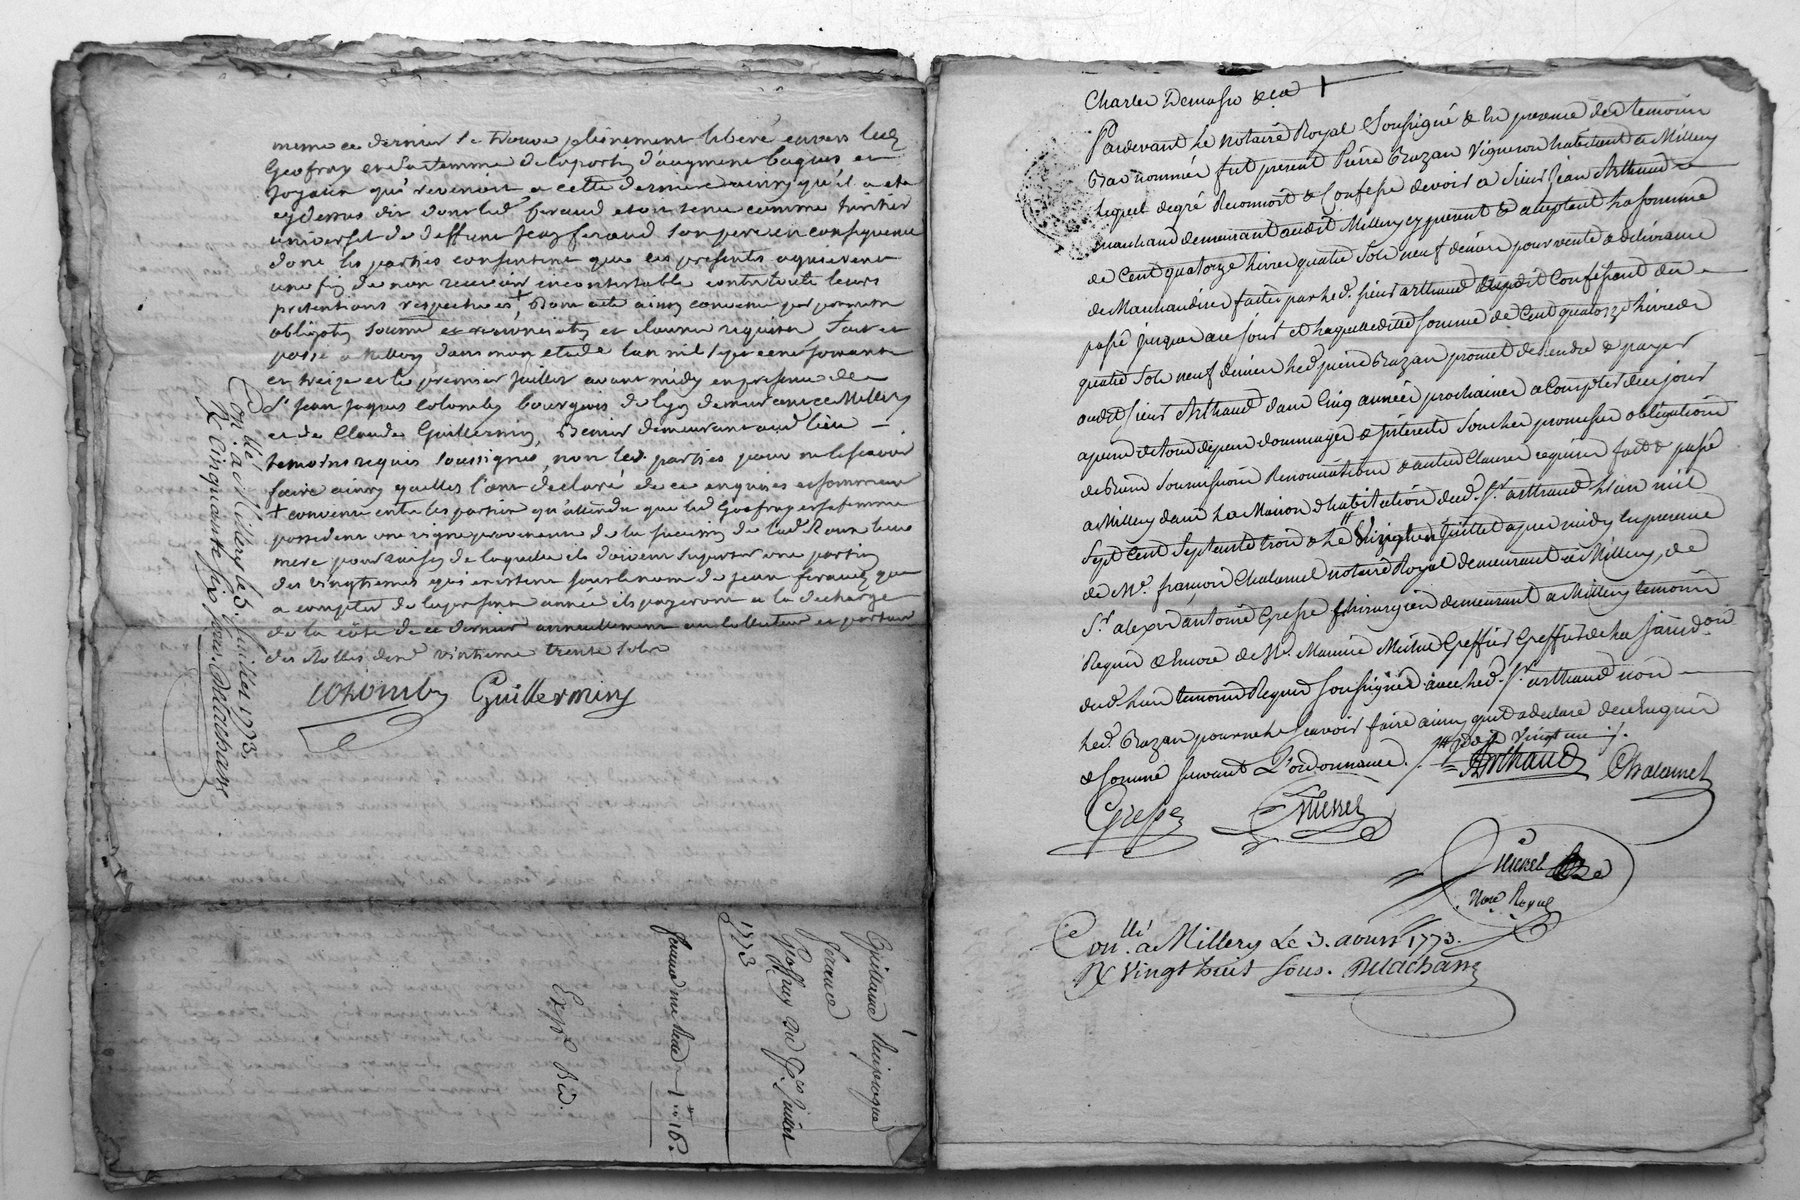 meme ce dernier se trouve pleinement libéré envers led.
Geofray et sa femme de la portion d'augment bagues et
joyaux qui revenoit a cette derniere ainsy qu'il a ete
cy dessus dit dont led. feraud etoit tenu comme heritier
universel de deffunt Jean feraud son pere en consequence
dont les parties consentent que les presentes operent
une fin de non recevoir incontestable contre toute leurs
pretentions respectives + Dont acte ainsy convenu par promette
obligation soumi et renonciation et clause requise fait et
passé a Millery dans mon etude l'an mil sept cent soixante
et treize et le premier Juillet avant midy en presence de
Sr. Jean Jaques Colomby bourgeois de Lyon demeurant a Millery
et de Claude Guillermin, demeurant aud. lieu
temoins requis soussignés, non led. parties pour ne le scavoir
faire ainsy quelles l'ont declaré de ce enquises et sommees
+ convenu entre les parties qu'attendu que led. Geofray et sa femme
possedent une vigne provenente de la succession de lad. leur
mere pour raison de laquelle ils doivent suporter une portion
des vingtiemes qui existent sous le nom de jean feraud que
a compter de la presente année ils payeront a la decharge
de la côte de ce dernier annuellement au collecteur et porteur
des Rolles dud. vintieme trente sols
Colomby Guillerminy
Con.llé a Millery le 5. Juillet 1773.
R cinquante six sous. Delachans
Quittance Reciproque
feraud
Geoffray du 1er Juillet
1773
Exp.
Charles Demasso &ca
Pardevant Le Notaire Royal Soussigné & En presence des temoins
Bas nommés fut present Pierre Brazan Vigneron habitant a Millery
Lequel de gré Reconnoit & Confesse devoir a Sieur Jean Arthaud
marchand demeurant audit Millery cy present & acceptant La somme
de Cent quatorze Livres quatre Sols neuf deniers pour vente & delivrance
de Marchandises faites par Led. Sieur arthaud audit Confessant du
passé jusques a ce jour et Laquelle ditte Somme de Cent quatorze Livres
quatre Sols neuf deniers Led. pierre Brazan promet de rendre & payer
audit Sieur Arthaud dans Cinq années prochaines a Compter de ce jour
a peine de tous depens dommages & Interests Sous les promesses obligations
de Biens Soumissions Renonciations & autres Clauses requises fait & passé
a Millery dans La Maison d'habitation dud. Sr. arthaud L'an mil
Sept Cent Septante trois & Le Vingt Juillet apres midy En presence
de Me. françois Chalamel notaire Royal demeurant a Millery, & de
Sr. alexn. antoine Grespe Chirurgien demeurant a Millery temoins
Requis & Encore de Me. Maurice Michel Greffier de La Jurisdon.
dud. Lieu temoins Requis Soussignés avec Led. Sr. arthaud non
Led. Brazan pour ne Le Scavoir faire ainsy qu'il a declaré de ce Enquis
& Sommé Suivant L'ordonnance.
Arthaud Chalamel
Grespe Michel
Michel
Nore. Royal
Con.llé a Millery Le 3. aoust 1773.
R Vingt huit sous. Delachans